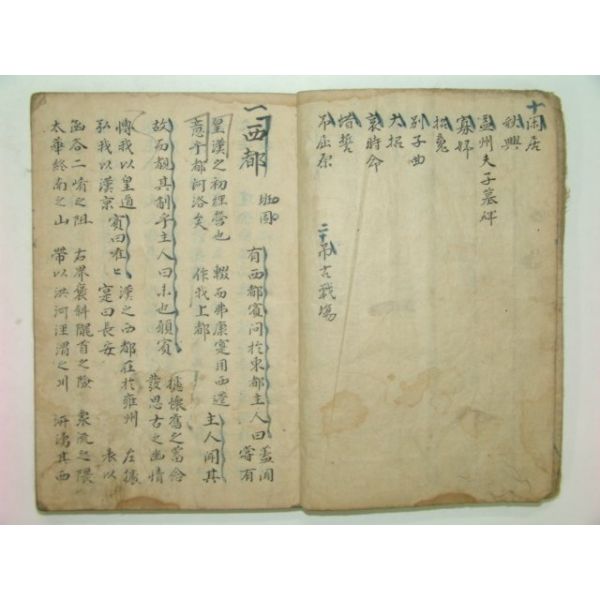 十 閑居
秋興
益州夫子墓碑
寡婦
招魂
別子曲
大招
哀時命
惜誓
吊屈原
二十 吊古戰場
一 西都 班固 有西都賓問於東都主人曰 蓋聞
嘗有
皇漢之初經營也 輟而弗康寔用西遷
意乎都河洛矣 作我上都 主人聞其
故而覩其制乎主人曰未也願賓 攄懷舊之蓄念
發思古之幽情
博我以皇道 賓曰唯〻 漢之西都在於雍州 左據
弘我以漢京 寔曰長安 表以
函谷二崤之阻 右界褒斜隴首之險 衆流之隈
太華終南之山 帶以洪河涇渭之川 汧涌其西